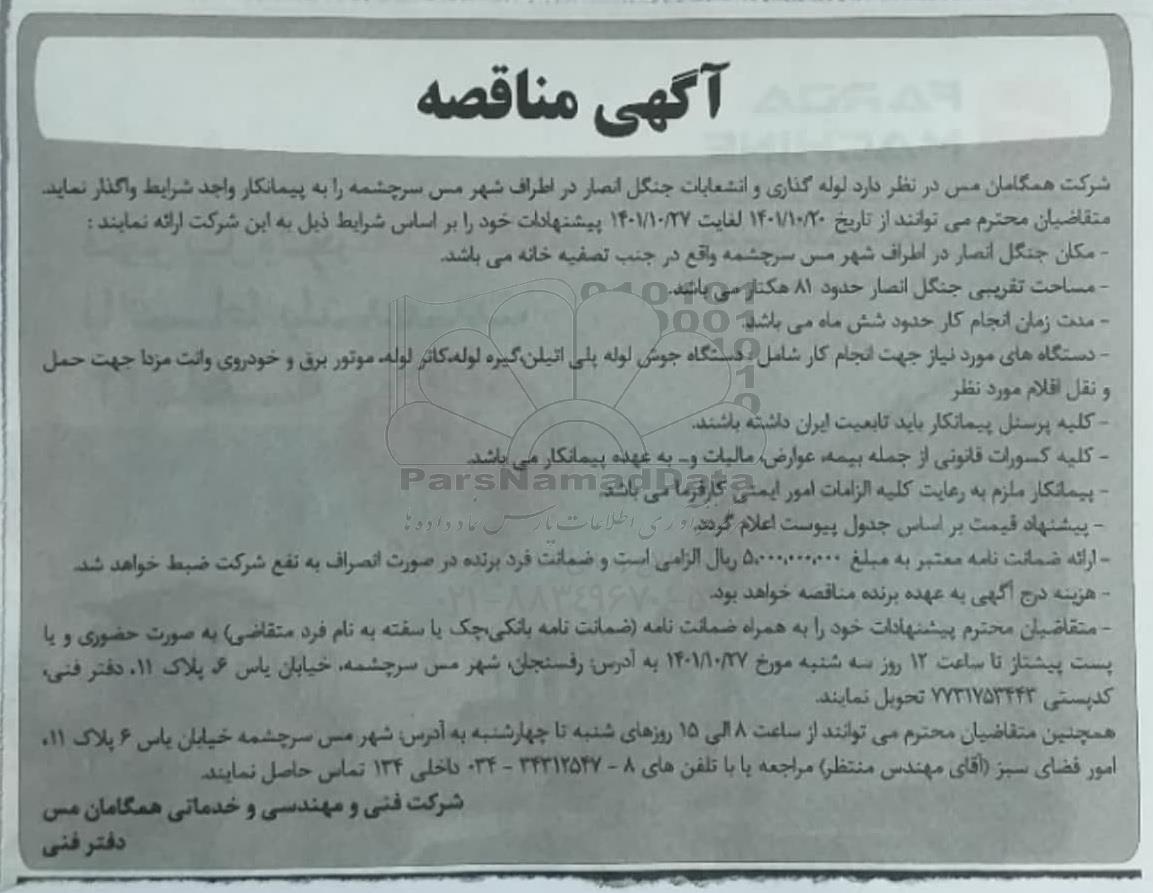 آگهی مناقصه
شرکت همگامان مس در نظر دارد لوله گذاری و انشعابات جنگل انصار در اطراف شهر مس سرچشمه را به پیمانکار واجد شرایط واگذار نماید.
متقاضیان محترم می توانند از تاریخ ۱۴۰۱/۱۰/۲۰ لغایت ۱۴۰۱/۱۰/۲۷ پیشنهادات خود را بر اساس شرایط ذیل به این شرکت ارائه نمایند :
- مکان جنگل انصار در اطراف شهر مس سرچشمه واقع در جنب تصفیه خانه می باشد.
- مساحت تقریبی جنگل انصار حدود ۸۱ هکتار می باشد.
- مدت زمان انجام کار حدود شش ماه می باشد.
- دستگاه های مورد نیاز جهت انجام کار شامل : دستگاه جوش لوله پلی اتیلن،گیره لوله،کاتر لوله، موتور برق و خودروی وانت مزدا جهت حمل
و نقل اقلام مورد نظر
- کلیه پرسنل پیمانکار باید تابعیت ایران داشته باشند.
- کلیه کسورات قانونی از جمله بیمه، عوارض، مالیات و... به عهده پیمانکار می باشد.
- پیمانکار ملزم به رعایت کلیه الزامات امور ایمنی کارفرما می باشد.
- پیشنهاد قیمت بر اساس جدول پیوست اعلام گردد.
- ارائه ضمانت نامه معتبر به مبلغ ۵,۰۰۰,۰۰۰,۰۰۰ ریال الزامی است و ضمانت فرد برنده در صورت انصراف به نفع شرکت ضبط خواهد شد.
- هزینه درج آگهی به عهده برنده مناقصه خواهد بود.
- متقاضیان محترم پیشنهادات خود را به همراه ضمانت نامه (ضمانت نامه بانکی،چک یا سفته به نام فرد متقاضی) به صورت حضوری و یا
پست پیشتاز تا ساعت ۱۲ روز سه شنبه مورخ ۱۴۰۱/۱۰/۲۷ به آدرس: رفسنجان، شهر مس سرچشمه، خیابان یاس ۶، پلاک ۱۱، دفتر فنی،
کدپستی ۷۷۳۱۷۵۳۴۴۳ تحویل نمایند.
همچنین متقاضیان محترم می توانند از ساعت ۸ الی ۱۵ روزهای شنبه تا چهارشنبه به آدرس: شهر مس سرچشمه خیابان یاس ۶ پلاک ۱۱،
امور فضای سبز (آقای مهندس منتظر) مراجعه یا با تلفن های ۸ - ۳۴۳۱۲۵۴۷ - ۰۳۴ داخلی ۱۳۴ تماس حاصل نمایند.
شرکت فنی و مهندسی و خدماتی همگامان مس
دفتر فنی
ParsNamadData
فرآوری اطلاعات پارس نماد داده ها
۰۲۱-۸۸۳۴۹۶۷۰-۵